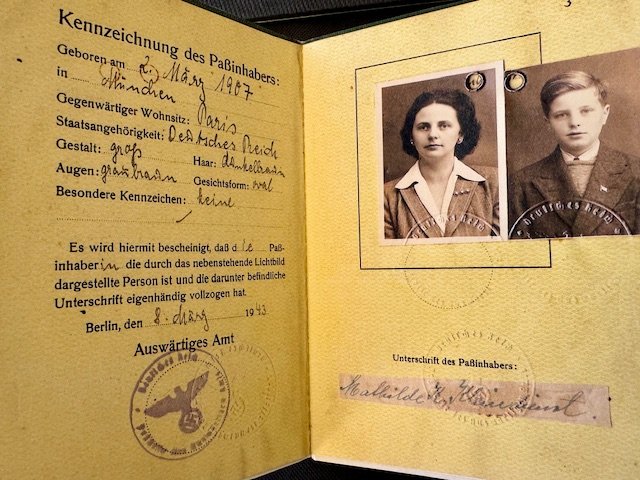 Kennzeichnung des Paßinhabers:
Geboren am 2. März 1907
in München
Gegenwärtiger Wohnsitz: Paris
Staatsangehörigkeit: Deutsches Reich
Gestalt: groß Haar: dunkelbraun
Augen: graubraun Gesichtsform: oval
Besondere Kennzeichen: keine
Es wird hiermit bescheinigt, daß die Paß-
inhaberin die durch das nebenstehende Lichtbild
dargestellte Person ist und die darunter befindliche
Unterschrift eigenhändig vollzogen hat.
Berlin, den 8. März 1943
Auswärtiges Amt
Deutsches Reich
3
Deutsches Reich
Deutsches Reich
Unterschrift des Paßinhabers:
Mathilde